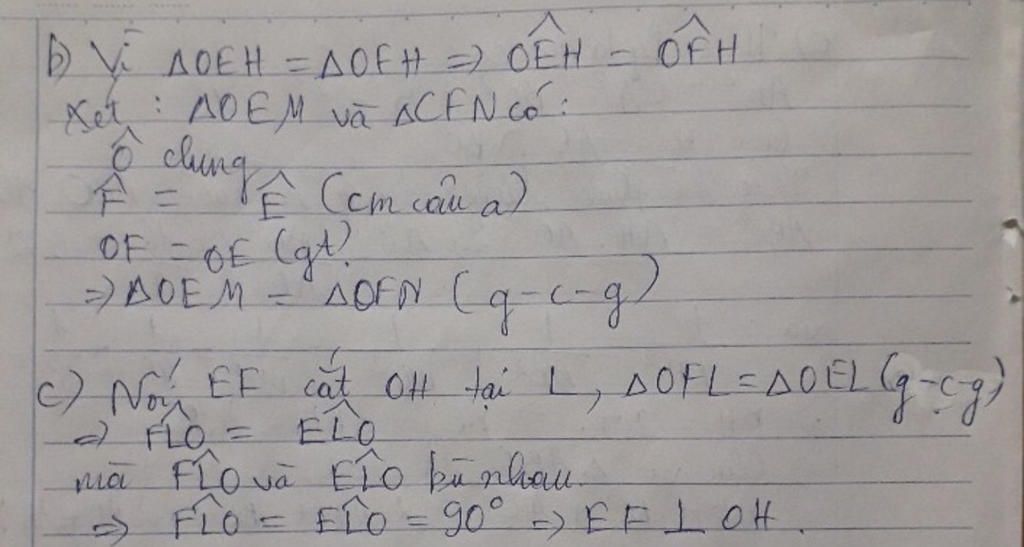 b) Vì ΔOEH = ΔOFH => OÊH = OF̂H
Xét : ΔOEM và ΔCFN có:
Ô chung
F̂ = Ê (cm câu a)
OF = OE (gt)
=> ΔOEM = ΔOFN (g-c-g)
c) Nối EF cắt OH tại L, ΔOFL = ΔOEL (g-c-g)
=> FL̂O = EL̂O
mà FL̂O và EL̂O bù nhau.
=> FL̂O = EL̂O = 90° => EF ⊥ OH.